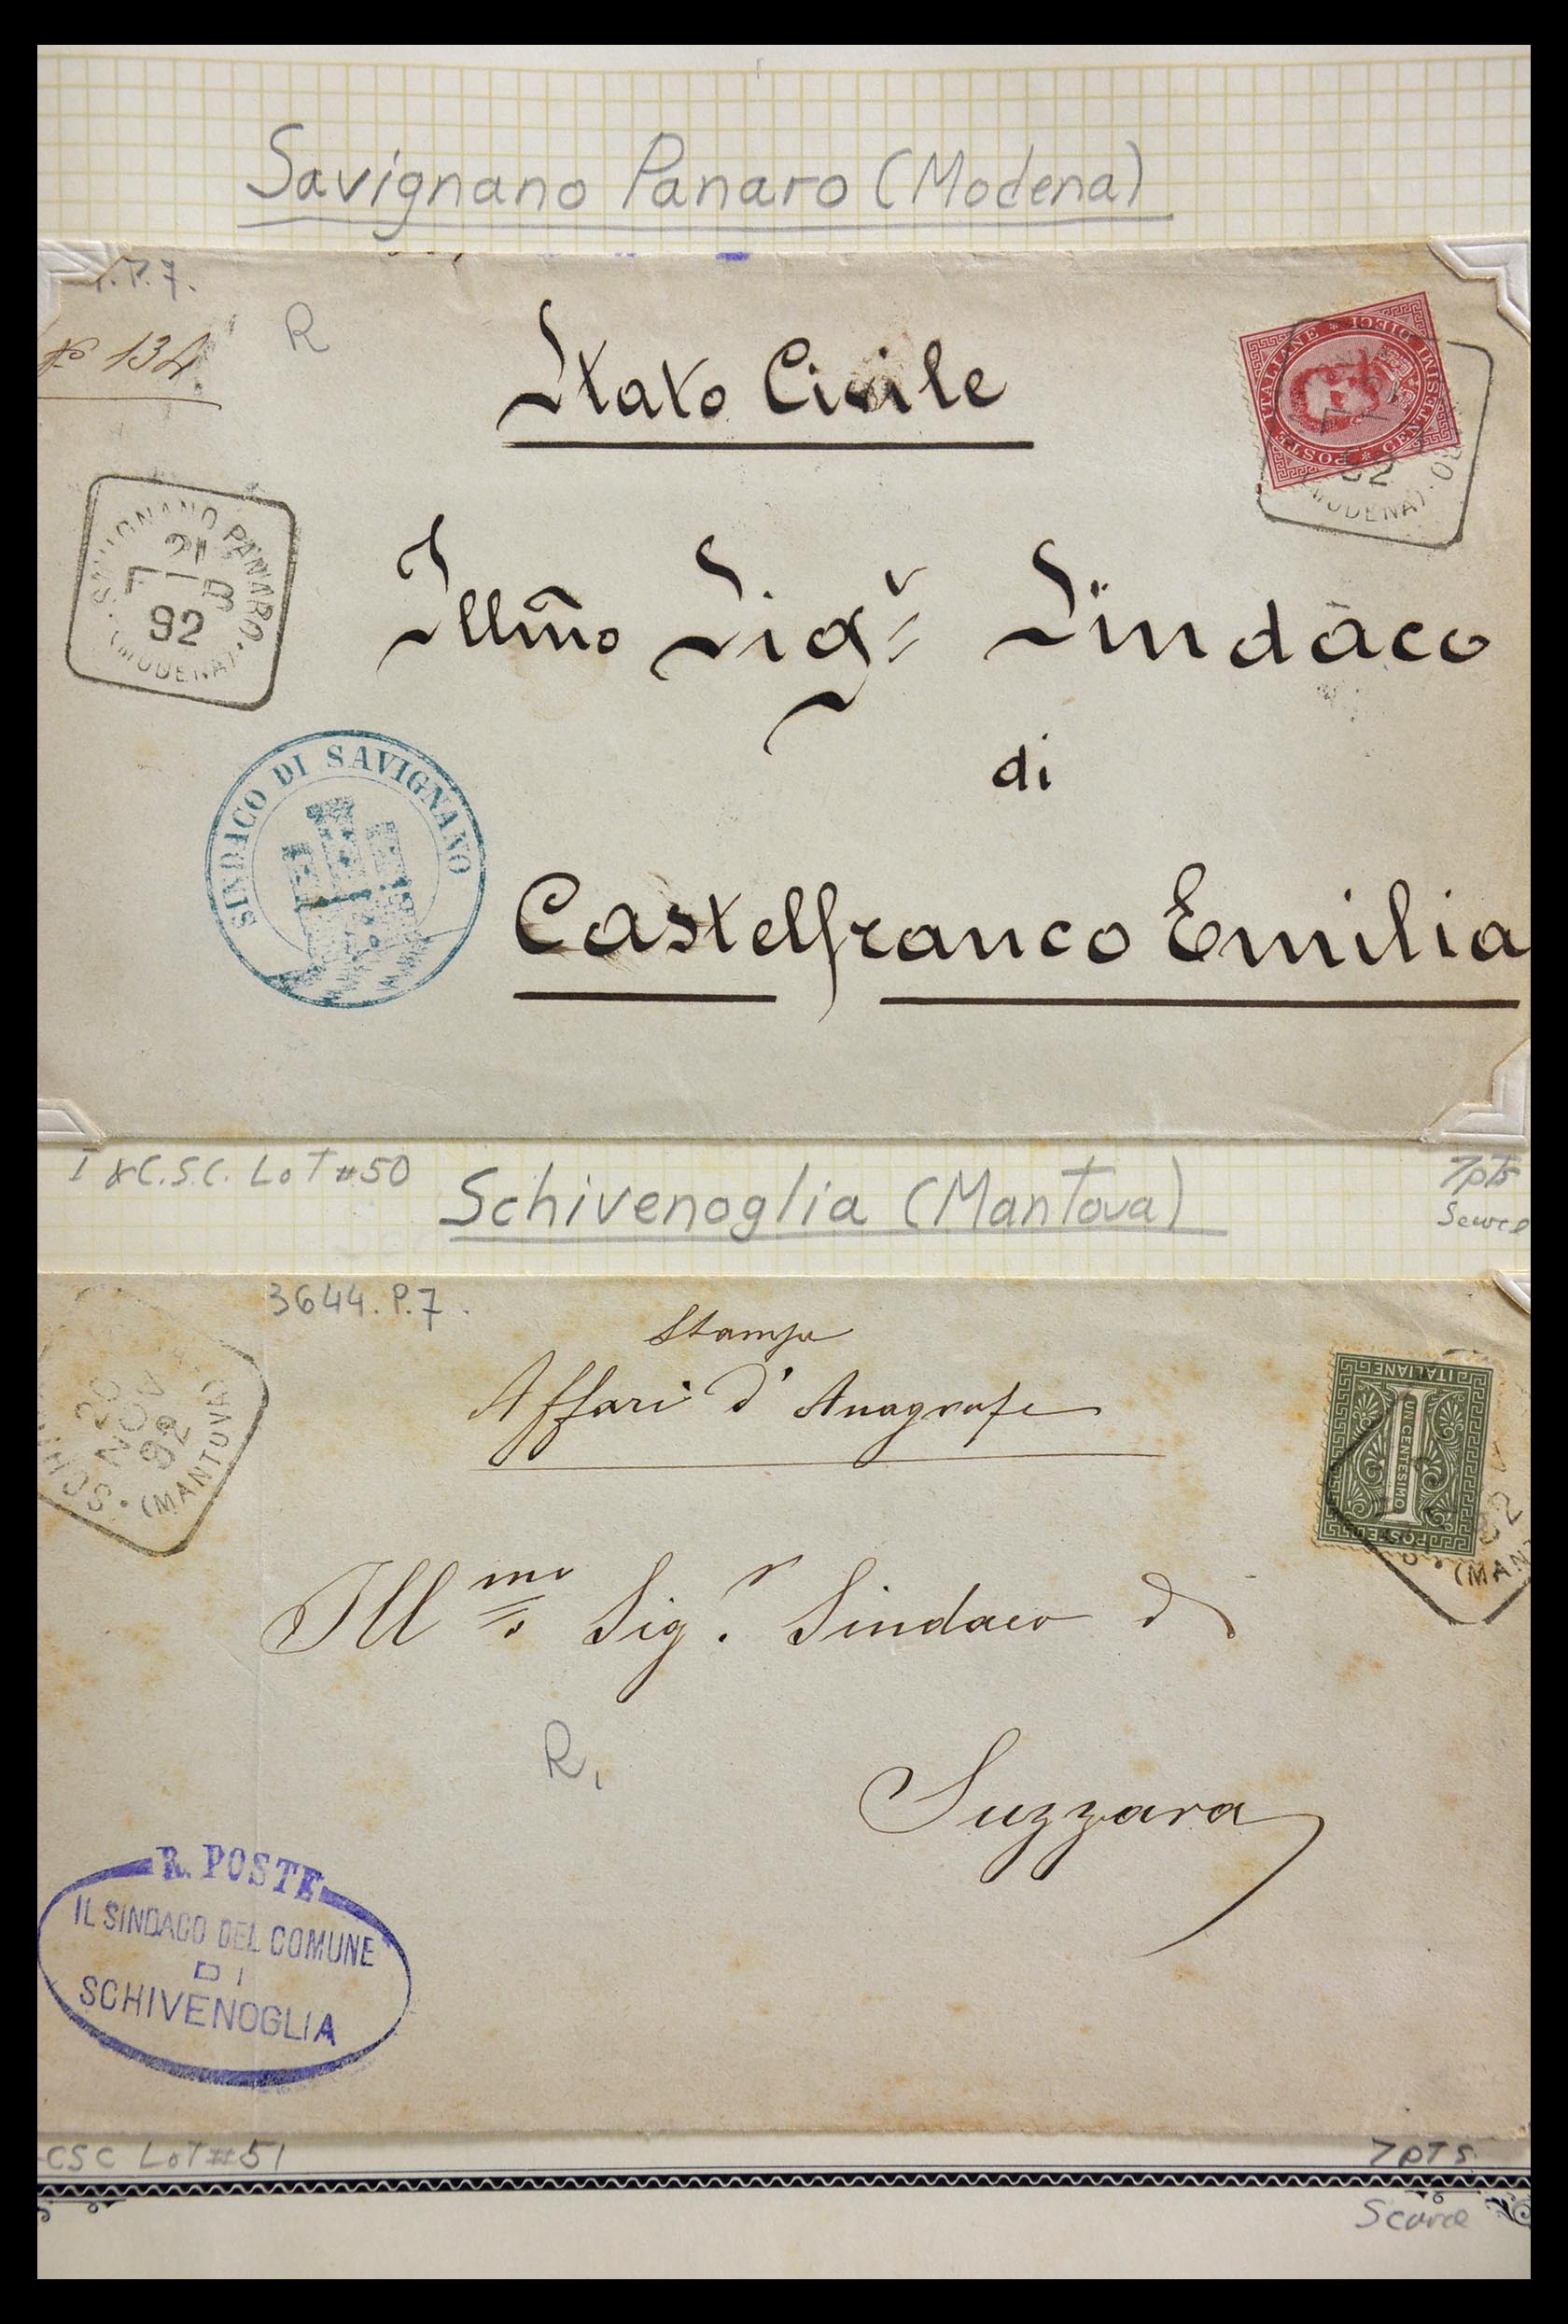 Savignano Panaro (Modena)
.P.7.
R
№ 134
Stato Civile
POSTE ITALIANE * CENTESIMI DIECI *
(MODENA)
92
SAVIGNANO PANARO
21
92
(MODENA)
Illm̃o Sigr Sindaco
di
SINDACO DI SAVIGNANO
Castelfranco Emilia
I & C.S.C. LOT #50
7pts
Scarce
Schivenoglia (Mantova)
3644. P.7.
Stampe
Affari d'Anagrafe
20
NOV
92
(MANTOVA)
POSTE ITALIANE
UN CENTESIMO
1
92
(MAN
Illmo Sigr. Sindaco di
R.
Suzzara
R. POSTE
IL SINDACO DEL COMUNE
DI
SCHIVENOGLIA
CSC LOT #51
7pts
Scarce